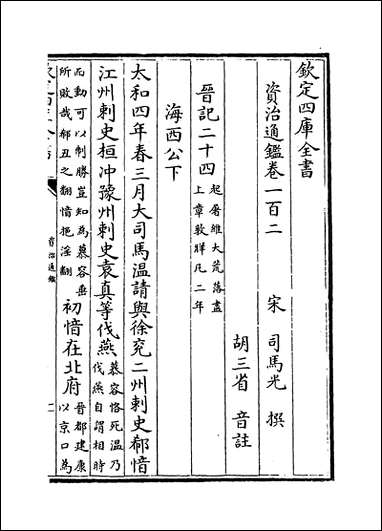 欽定四庫全書
資治通鑑卷一百二
宋 司馬光 撰
胡三省 音註
晉記二十四起屠維大荒落盡上章敦牂凡二年
海西公下
太和四年春三月大司馬温請與徐兗二州刺史郗愔
江州刺史桓冲豫州刺史袁真等伐燕慕容恪死温乃伐燕自謂相時
而動可以制勝豈知為慕容垂所敗哉郗丑之翻愔挹淫翻初愔在北府晉都建康以京口為
資治通鑑